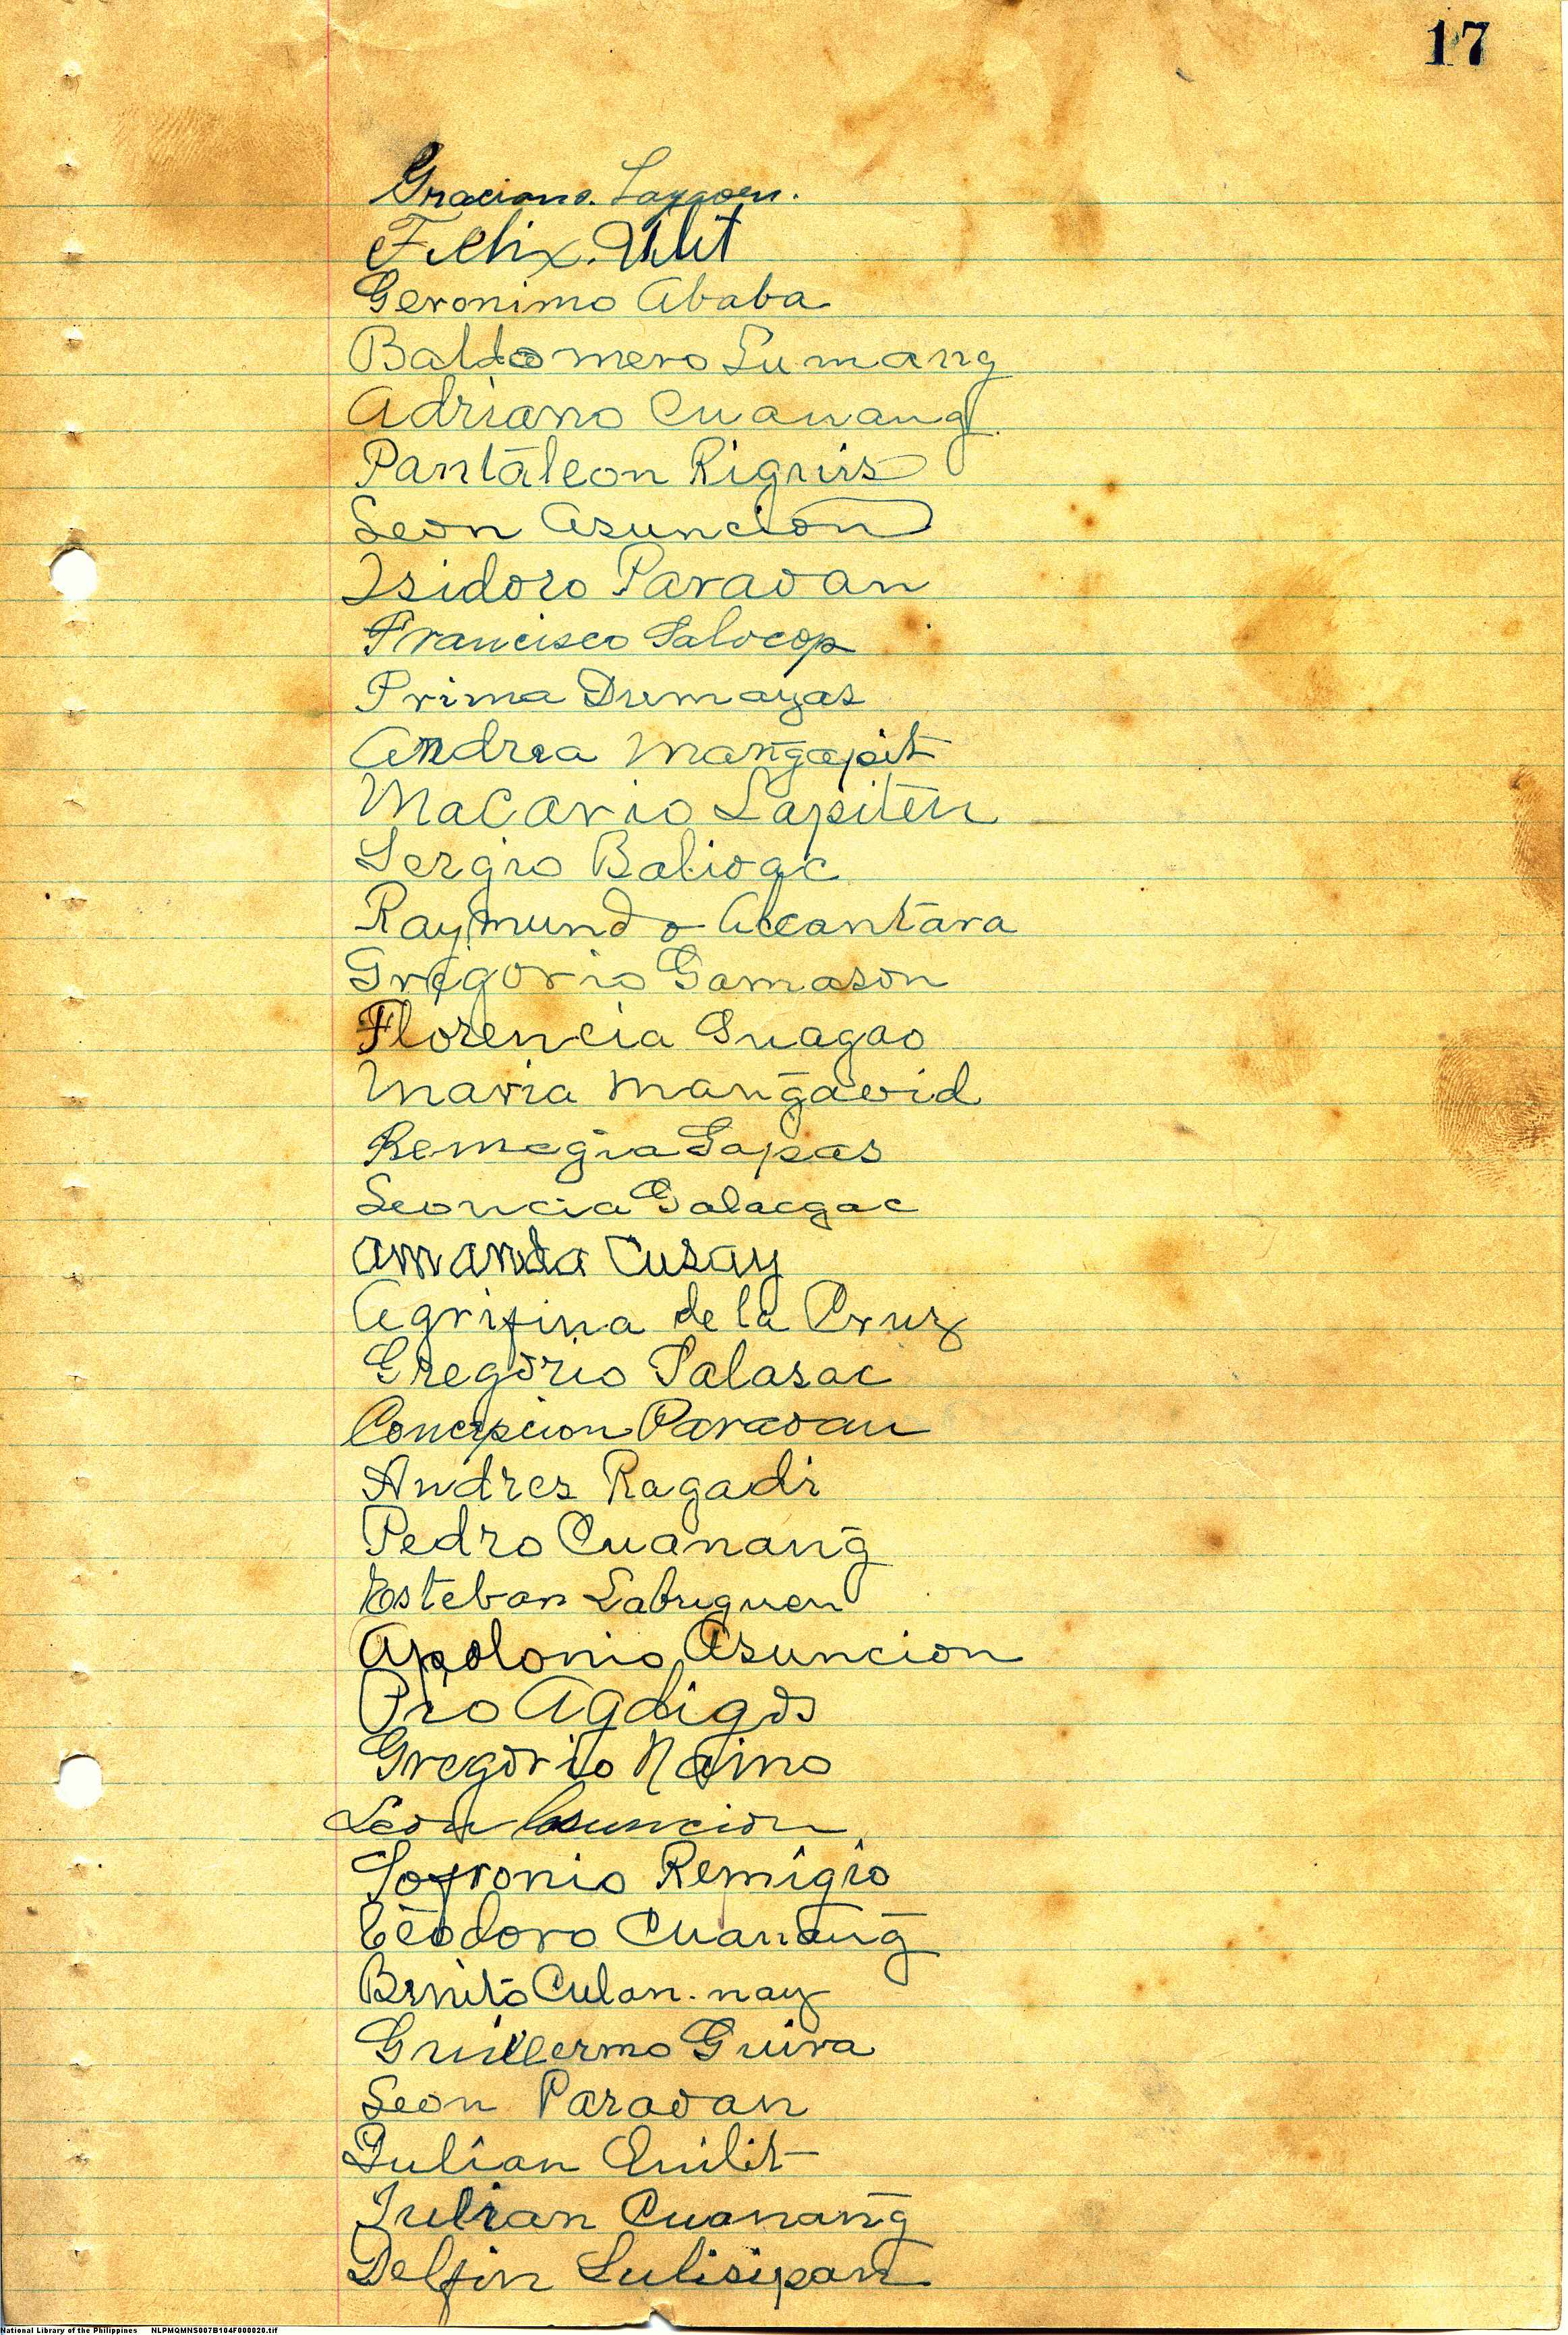 17
Graciano. Laygoen.
Felix. Ulit
Geronimo Ababa
Baldomero Lumang
Adriano Cuanang
Pantaleon Riguis
Leon Asuncion
Isidoro Paraoan
Francisco Salocop
Prima Dumayas
Andrea Mangapit
Macario Lapiten
Sergio Balioac
Raymundo Alcantara
Gregorio Gamason
Florencia Guagao
Maria Mangaoid
Remegia Gapas
Leoncia Galacgac
Amanda Cusay
Agrifina de la Cruz
Gregorio Palasac
Concepcion Paraoan
Andres Ragadi
Pedro Cuanang
Esteban Labuguen
Apolonio Asuncion
Pio Agdigos
Gregorio Naino
Leon Asuncion
Sofronio Remigio
Teodoro Cuanang
Benito Culan-nay
Guillermo Guira
Leon Paraoan
Julian Quilit
Julian Cuanang
Delfin Lulisipan
National Library of the Philippines NLPMQMNS007B104F000020.tif